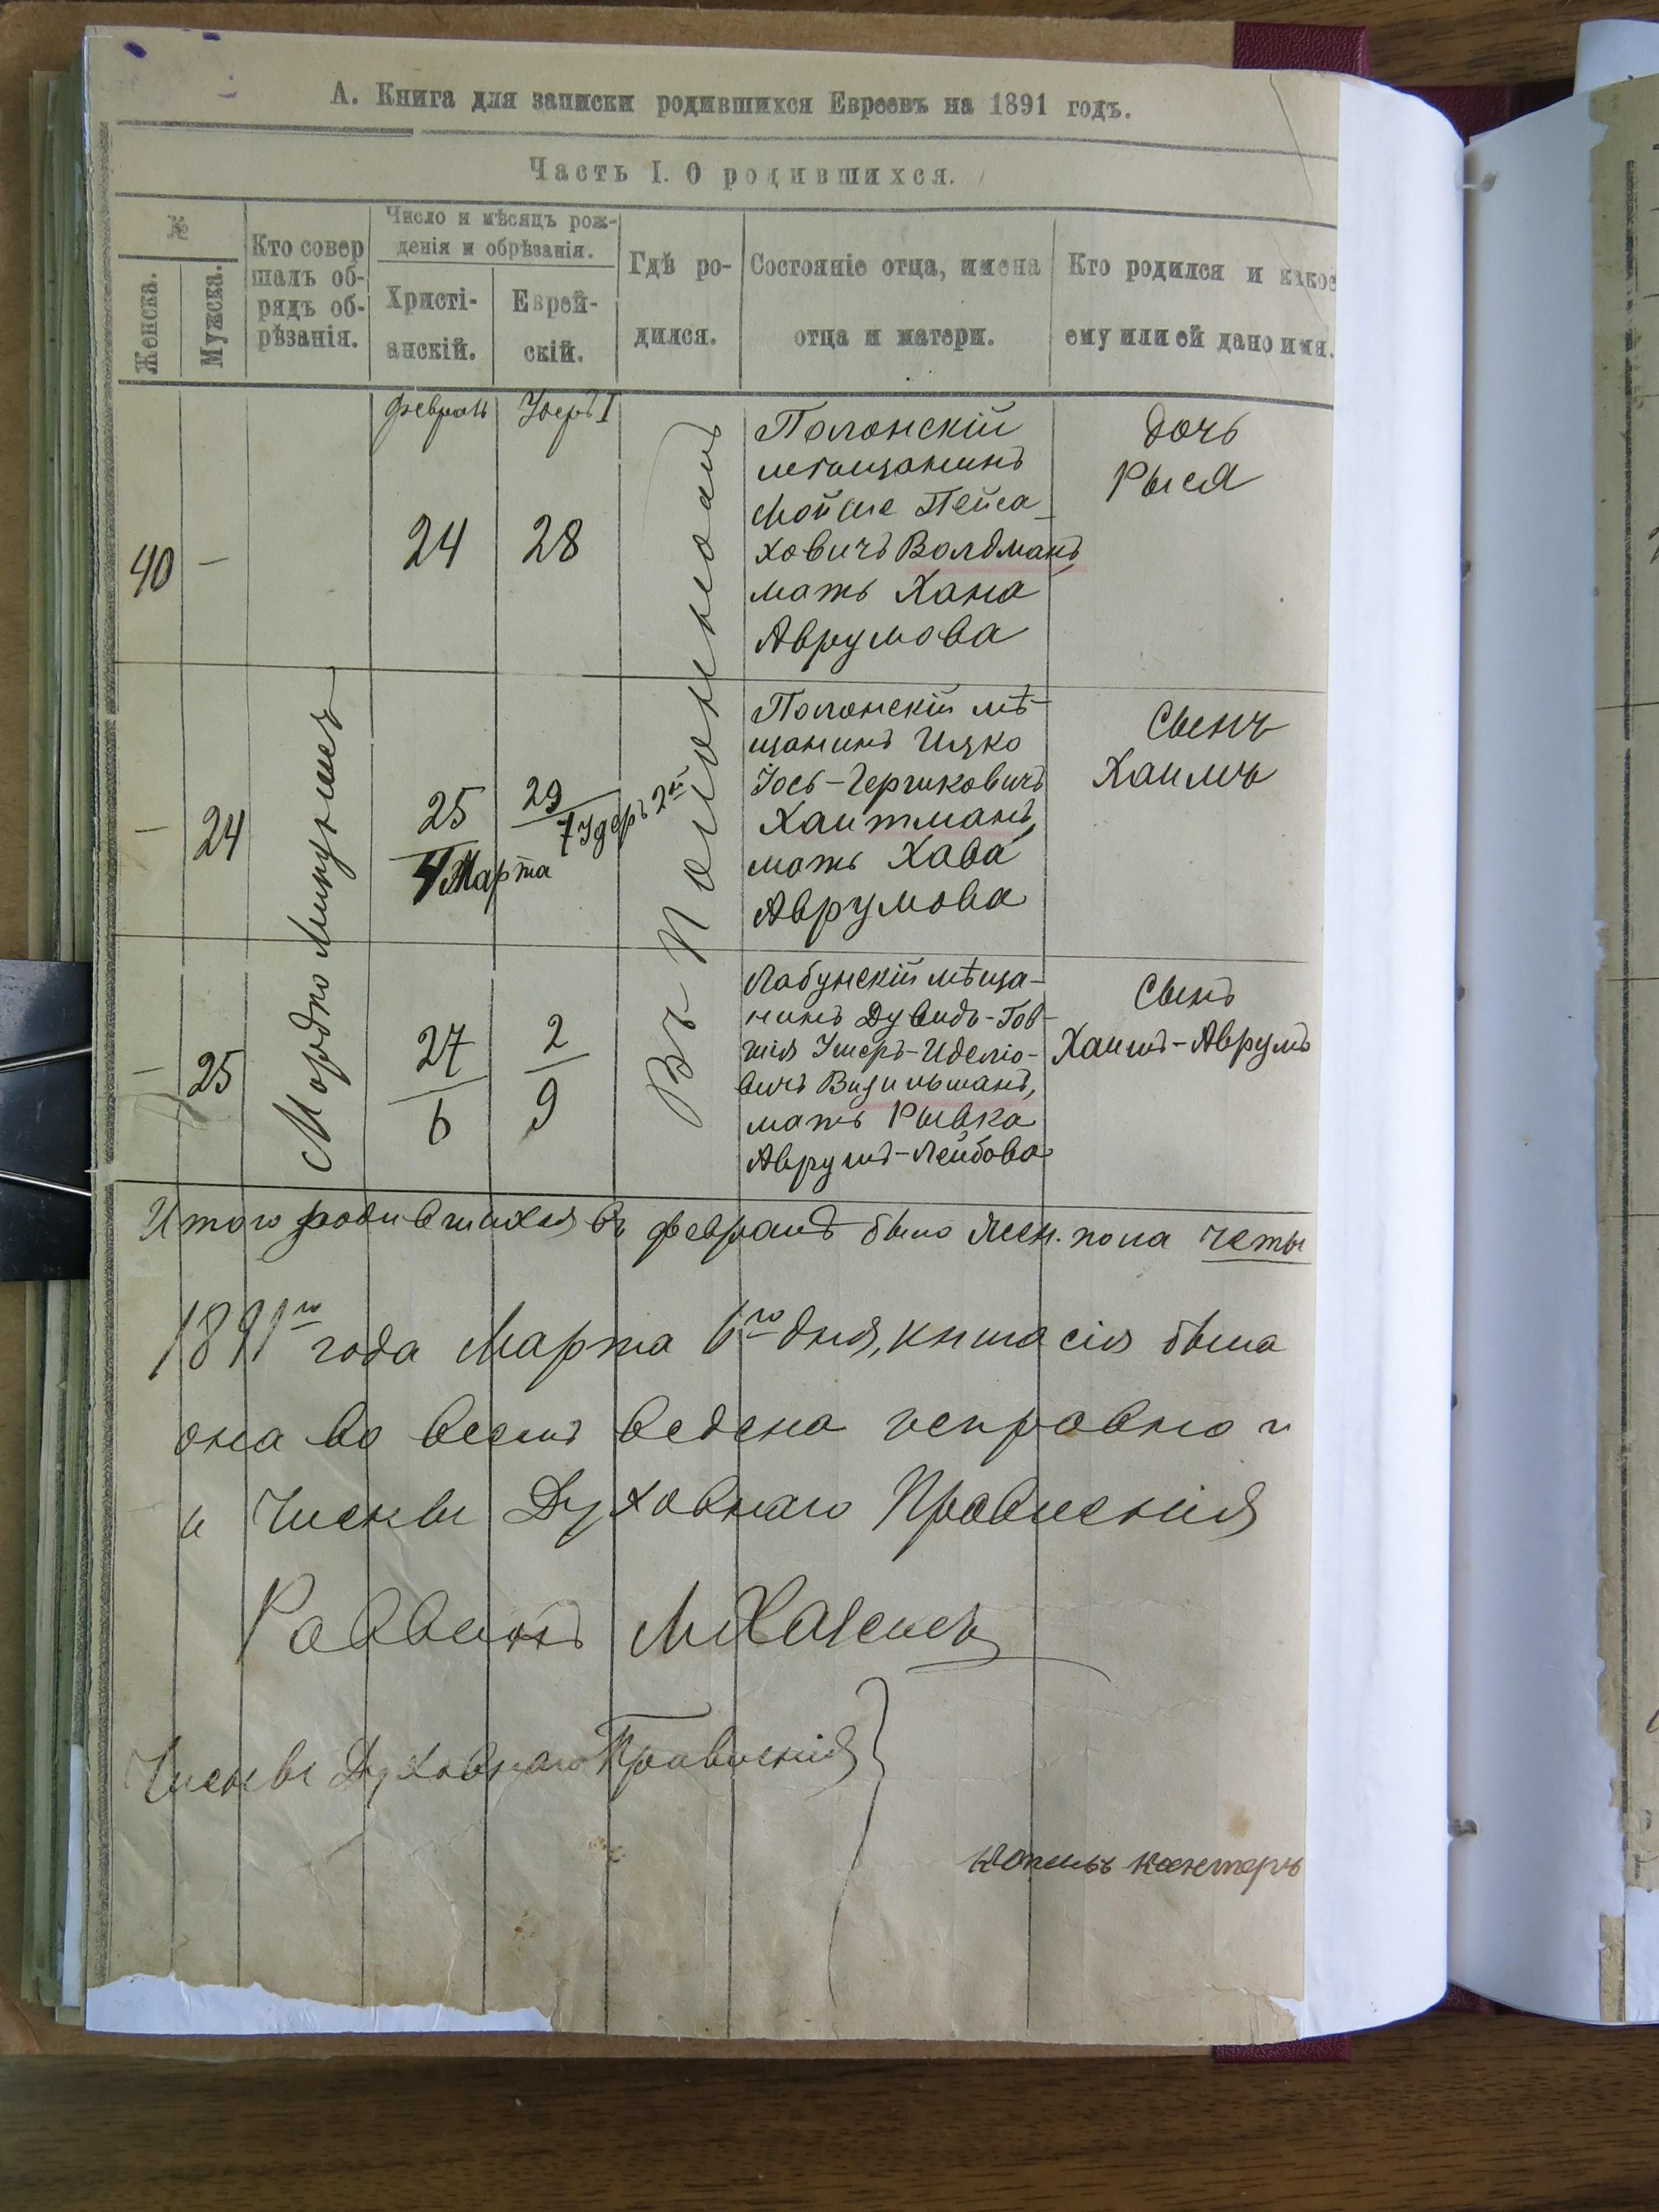 А. Книга для записки родившихся Евреевъ на 1891 годъ.
Часть I. О родившихся.
№
Женска.
Мужска.
Кто совер
шалъ об-
рядъ об-
рѣзанія.
Число и мѣсяцъ рож-
денія и обрѣзанія.
Христі-
анскій.
Еврей-
скій.
Гдѣ ро-
дился.
Состояніе отца, имена
отца и матери.
Кто родился и какое
ему или ей дано имя.
Февраль
I
40
-
24
28
Въ
Полонскій
мѣщанинъ
Мойше Пейса-
ховичъ Валдманъ
мать Хана
Аврумова
Дочь
Рыся
-
24
Мордко
25
4 Марта
29
7 Удеръ 2й
Полонскій мѣ-
щанинъ Ицко
Іось-Гершковичъ
Хаитманъ,
мать Хава
Аврумова
Сынъ
Хаимъ
-
25
27
6
2
9
Лабунскій мѣща-
нинъ Дувидъ-Гов-
шія Ушеръ-Иделіо-
вичъ Визильманъ,
мать Рывка
Аврумъ-Лейбова
Сынъ
Хаимъ-Аврумъ
Итого родившихся въ Февралѣ было жен. пола четы
1891го года Марта 6го дня, книга сія была
она во всемъ ведена исправно и
и Члены Духовнаго Правленія
Раввинъ
Члены Духовнаго Правленія
Копель Кантеръ